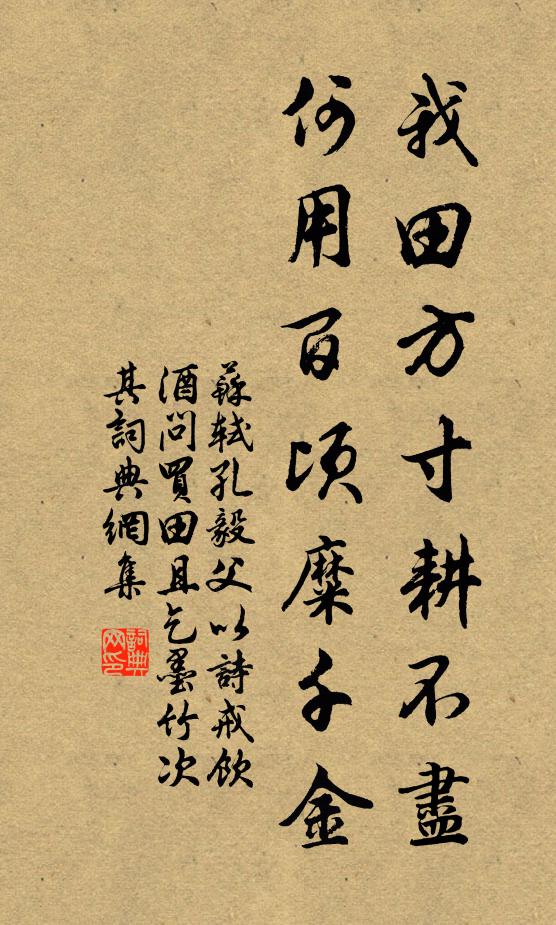 我田方寸耕不盡
何用百頃糜千金
蘇軾孔毅父以詩戒飲
酒問買田且乞墨竹次
其詞典網集
詞典
网印